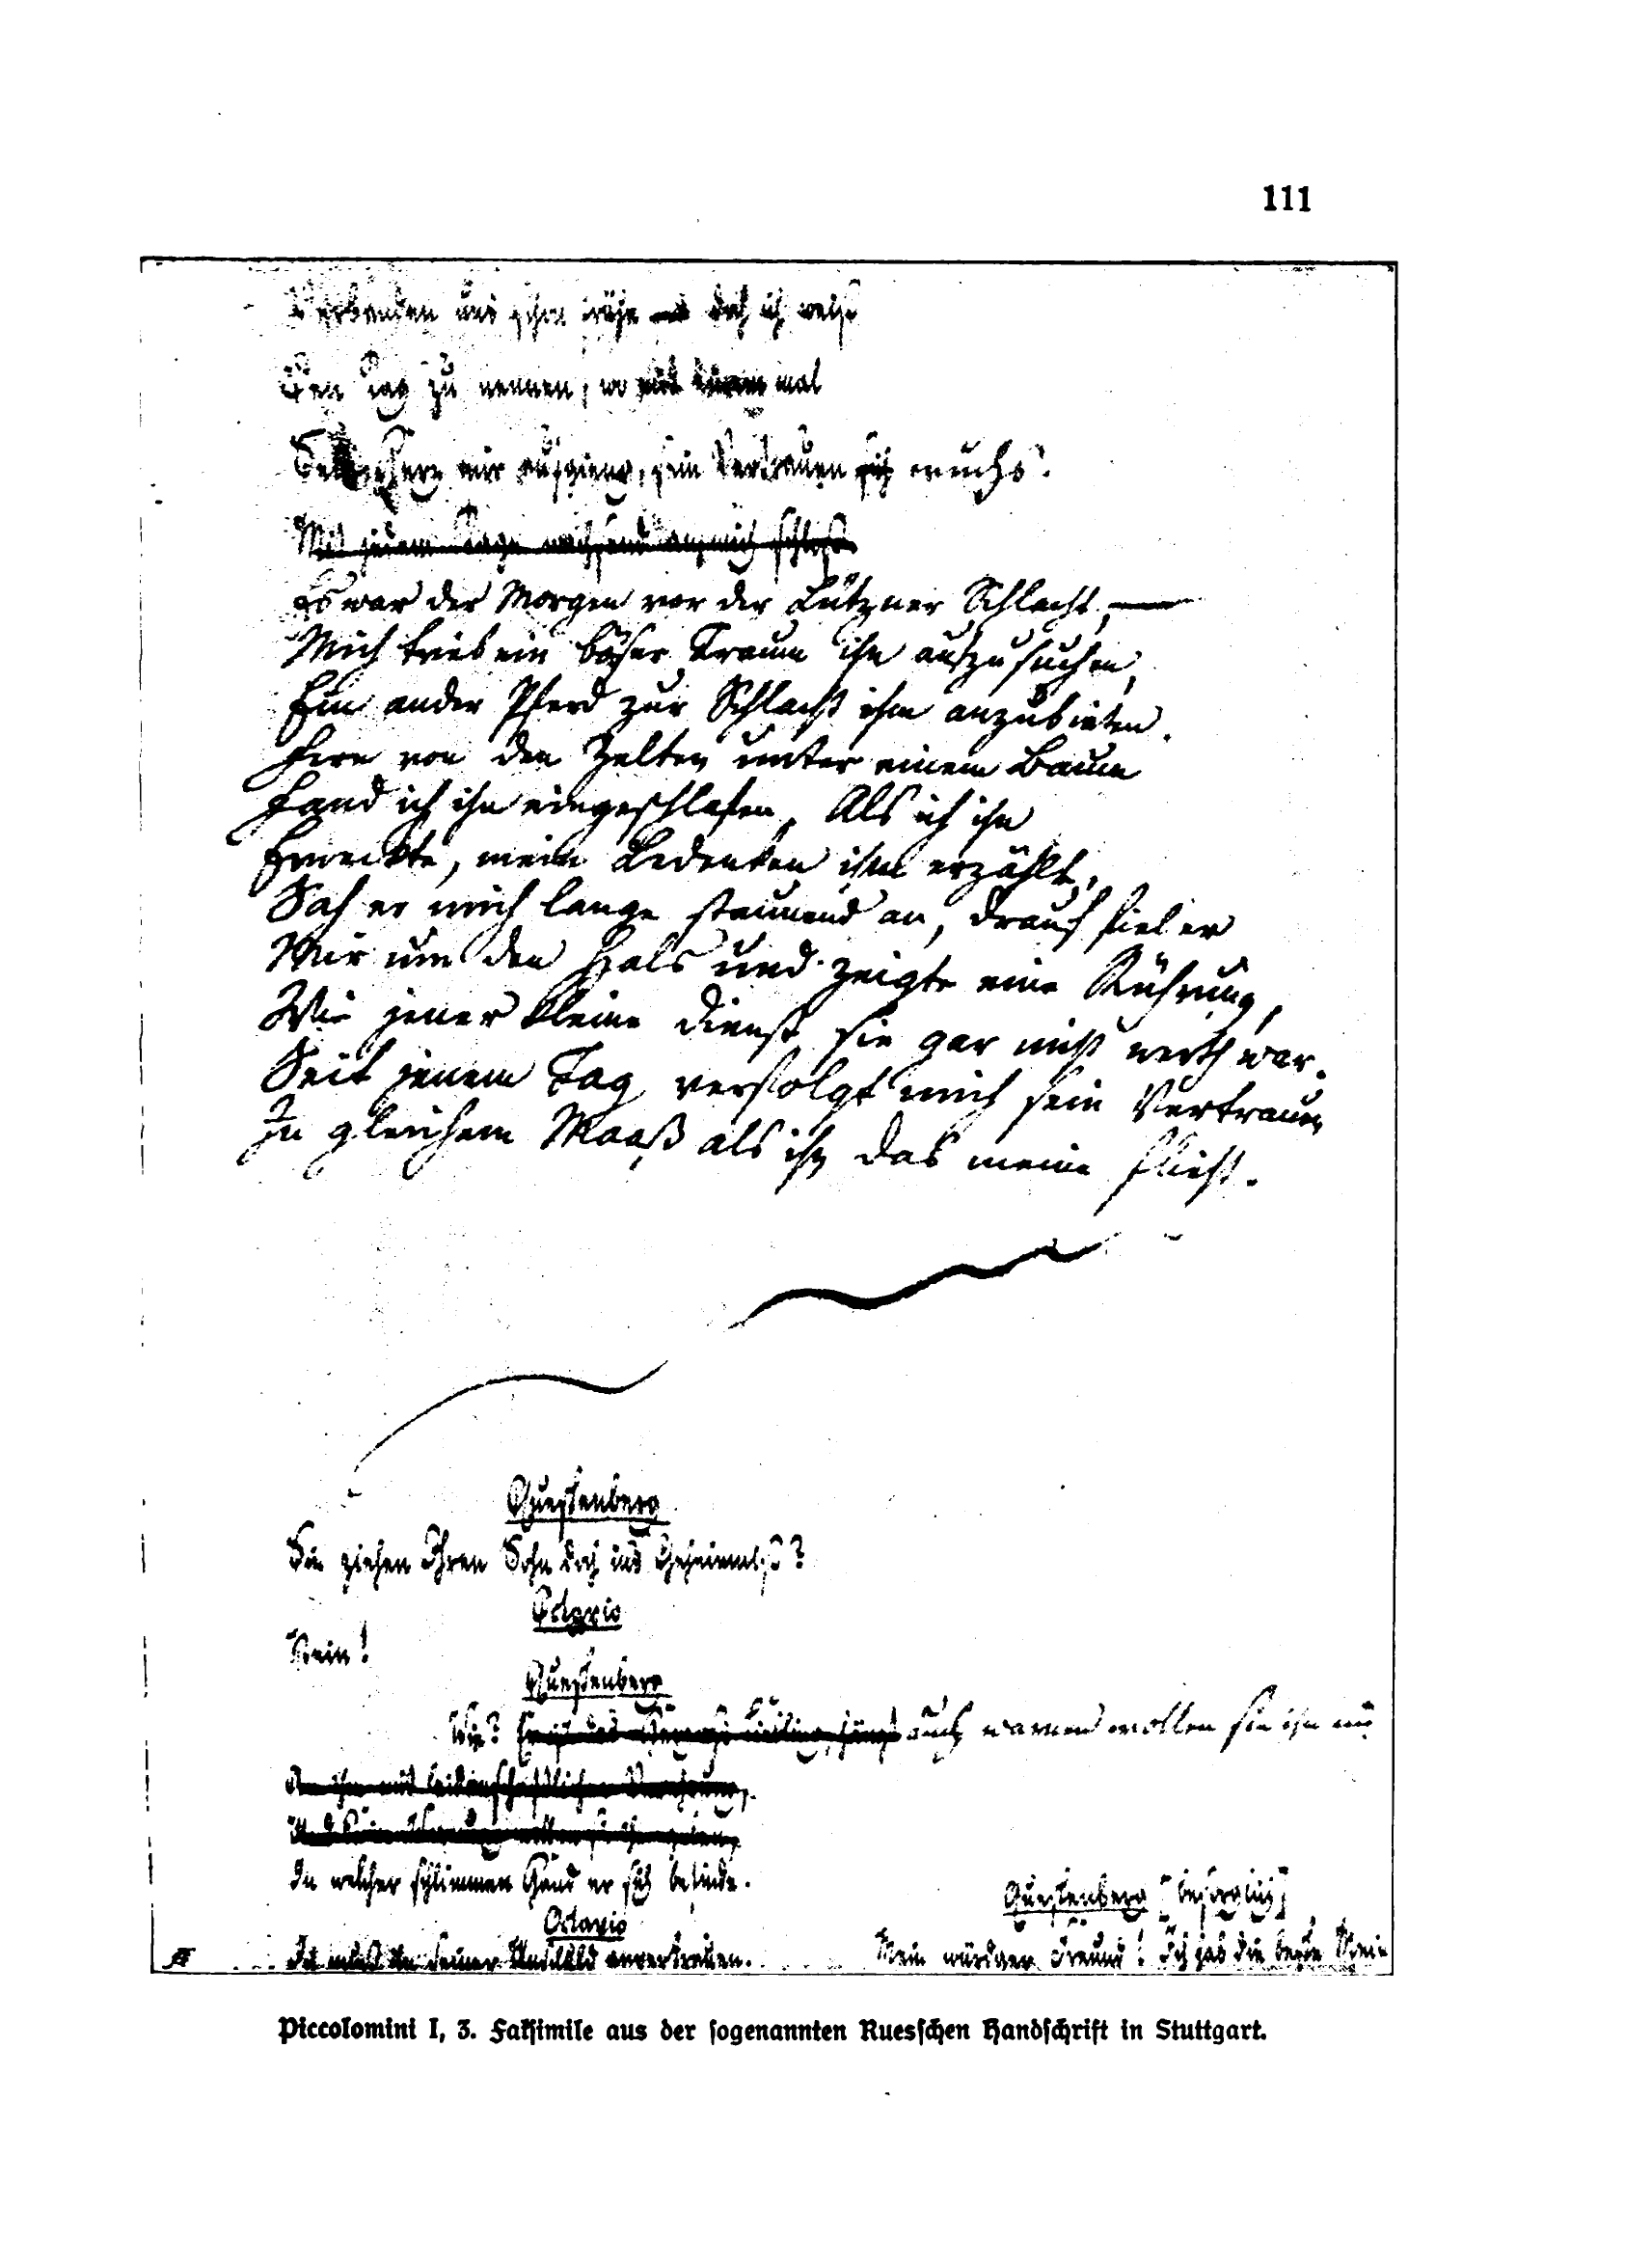 111
Verbanden uns schon frühe doch ich weiß
Den Tag zu nennen, wo mit einem mal
Herz mir aufgieng, sein Vertrauen wuchs.
Mit jedem Tage wachsend an mich schloß
Es war der Morgen vor der Lützner Schlacht, —
Mich trieb ein böser Traum ihn aufzusuchen,
Ein ander Pferd zur Schlacht ihm anzubieten.
Fern von den Zelten unter einem Baum
Fand ich ihn eingeschlafen. Als ich ihn
Erweckte, mein Bedenken ihm erzählt,
Sah er mich lange staunend an, drauf fiel er
Mir um den Hals und zeigte eine Rührung,
Wie jener kleine Dienst sie gar nicht werth war.
Seit jenem Tag verfolgt mich sein Vertrauen
In gleichem Maaß als ihn das meine flieht.
Questenberg
Sie ziehen Ihren Sohn doch ins Geheimniß?
Octavio
Nein!
Questenberg
Wie? auch warnen wollen sie ihn nicht
An ihm mit leidenschaftlicher Verehrung,
In welcher schlimmen Hand er sich befinde.
Octavio
Questenberg [besorglich]
Ich muß ihn seiner Unschuld anvertrauen.
Mein würdger Freund! Ich hab die beste Mei-
Piccolomini I, 3. Faksimile aus der sogenannten Ruesschen Handschrift in Stuttgart.